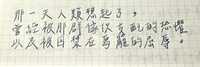 那一天人類想起了，
曾经被那個傢伙支配的恐懼
以及被囚禁在鳥籠的屈辱。